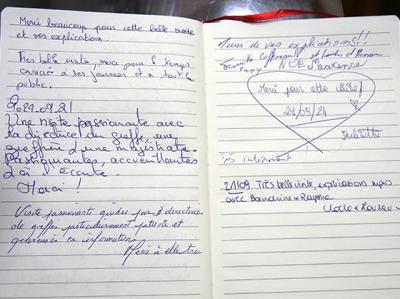 Merci beaucoup pour cette belle visite
et vos explications.
Très belle visite, merci pour le temps
consacré à les journées et à tout le
public.
2024.09.21
Une visite passionnante avec
la directrice du greffe, une
greffière, une magistrate.
Passionnantes, accueillantes
à l'écoute.
Merci !
Visite passionnante guidée par directrice
de greffe particulièrement patiente et
généreuse en informations.
Merci à elle
Merci de vos explications!!!
et
Merci pour cette visite!
21/09/24
Juliette
Très intéressant
21/09 Très belle visite, explications supers
avec Sandrine et